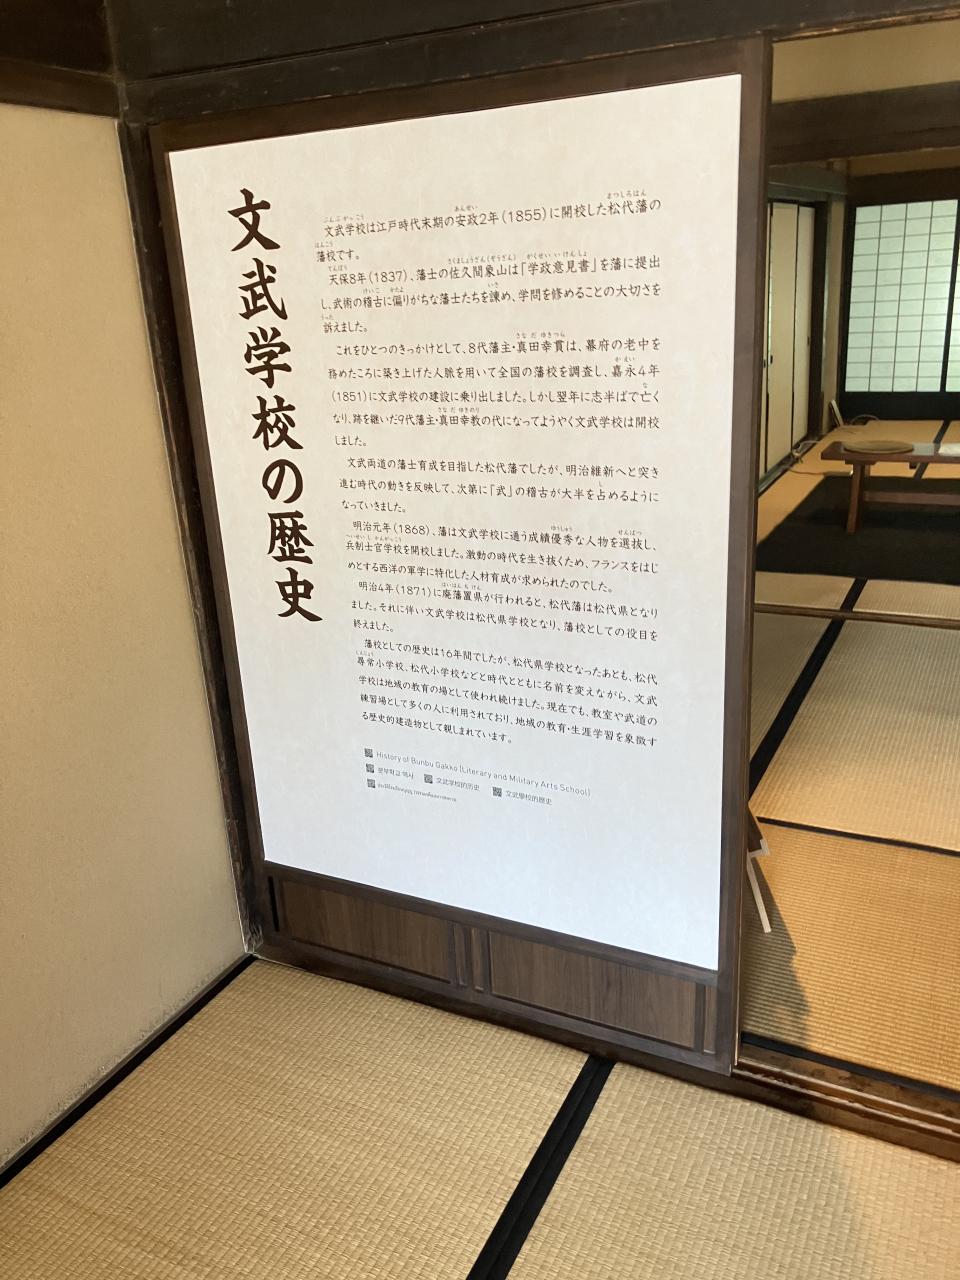 文武学校の歴史
文武学校は江戸時代末期の安政2年(1855)に開校した松代藩の
藩校です。
天保8年(1837)、藩士の佐久間象山は「学政意見書」を藩に提出
し、武術の稽古に偏りがちな藩士たちを諫め、学問を修めることの大切さを
訴えました。
これをひとつのきっかけとして、8代藩主・真田幸貫は、幕府の老中を
務めたころに築き上げた人脈を用いて全国の藩校を調査し、嘉永4年
(1851)に文武学校の建設に乗り出しました。しかし翌年に志半ばで亡く
なり、跡を継いだ9代藩主・真田幸教の代になってようやく文武学校は開校
しました。
文武両道の藩士育成を目指した松代藩でしたが、明治維新へと突き
進む時代の動きを反映して、次第に「武」の稽古が大半を占めるように
なっていきました。
明治元年(1868)、藩は文武学校に通う成績優秀な人物を選抜し、
兵制士官学校を開校しました。激動の時代を生き抜くため、フランスをはじ
めとする西洋の軍学に特化した人材育成が求められたのでした。
明治4年(1871)に廃藩置県が行われると、松代藩は松代県となり
ました。それに伴い文武学校は松代県学校となり、藩校としての役目を
終えました。
藩校としての歴史は16年間でしたが、松代県学校となったあとも、松代
尋常小学校、松代小学校などと時代とともに名前を変えながら、文武
学校は地域の教育の場として使われ続けました。現在でも、教室や武道の
練習場として多くの人に利用されており、地域の教育・生涯学習を象徴す
る歴史的建造物として親しまれています。
History of Bunbu Gakko (Literary and Military Arts School)
문부학교 역사 文武学校的历史 文武學校的歷史